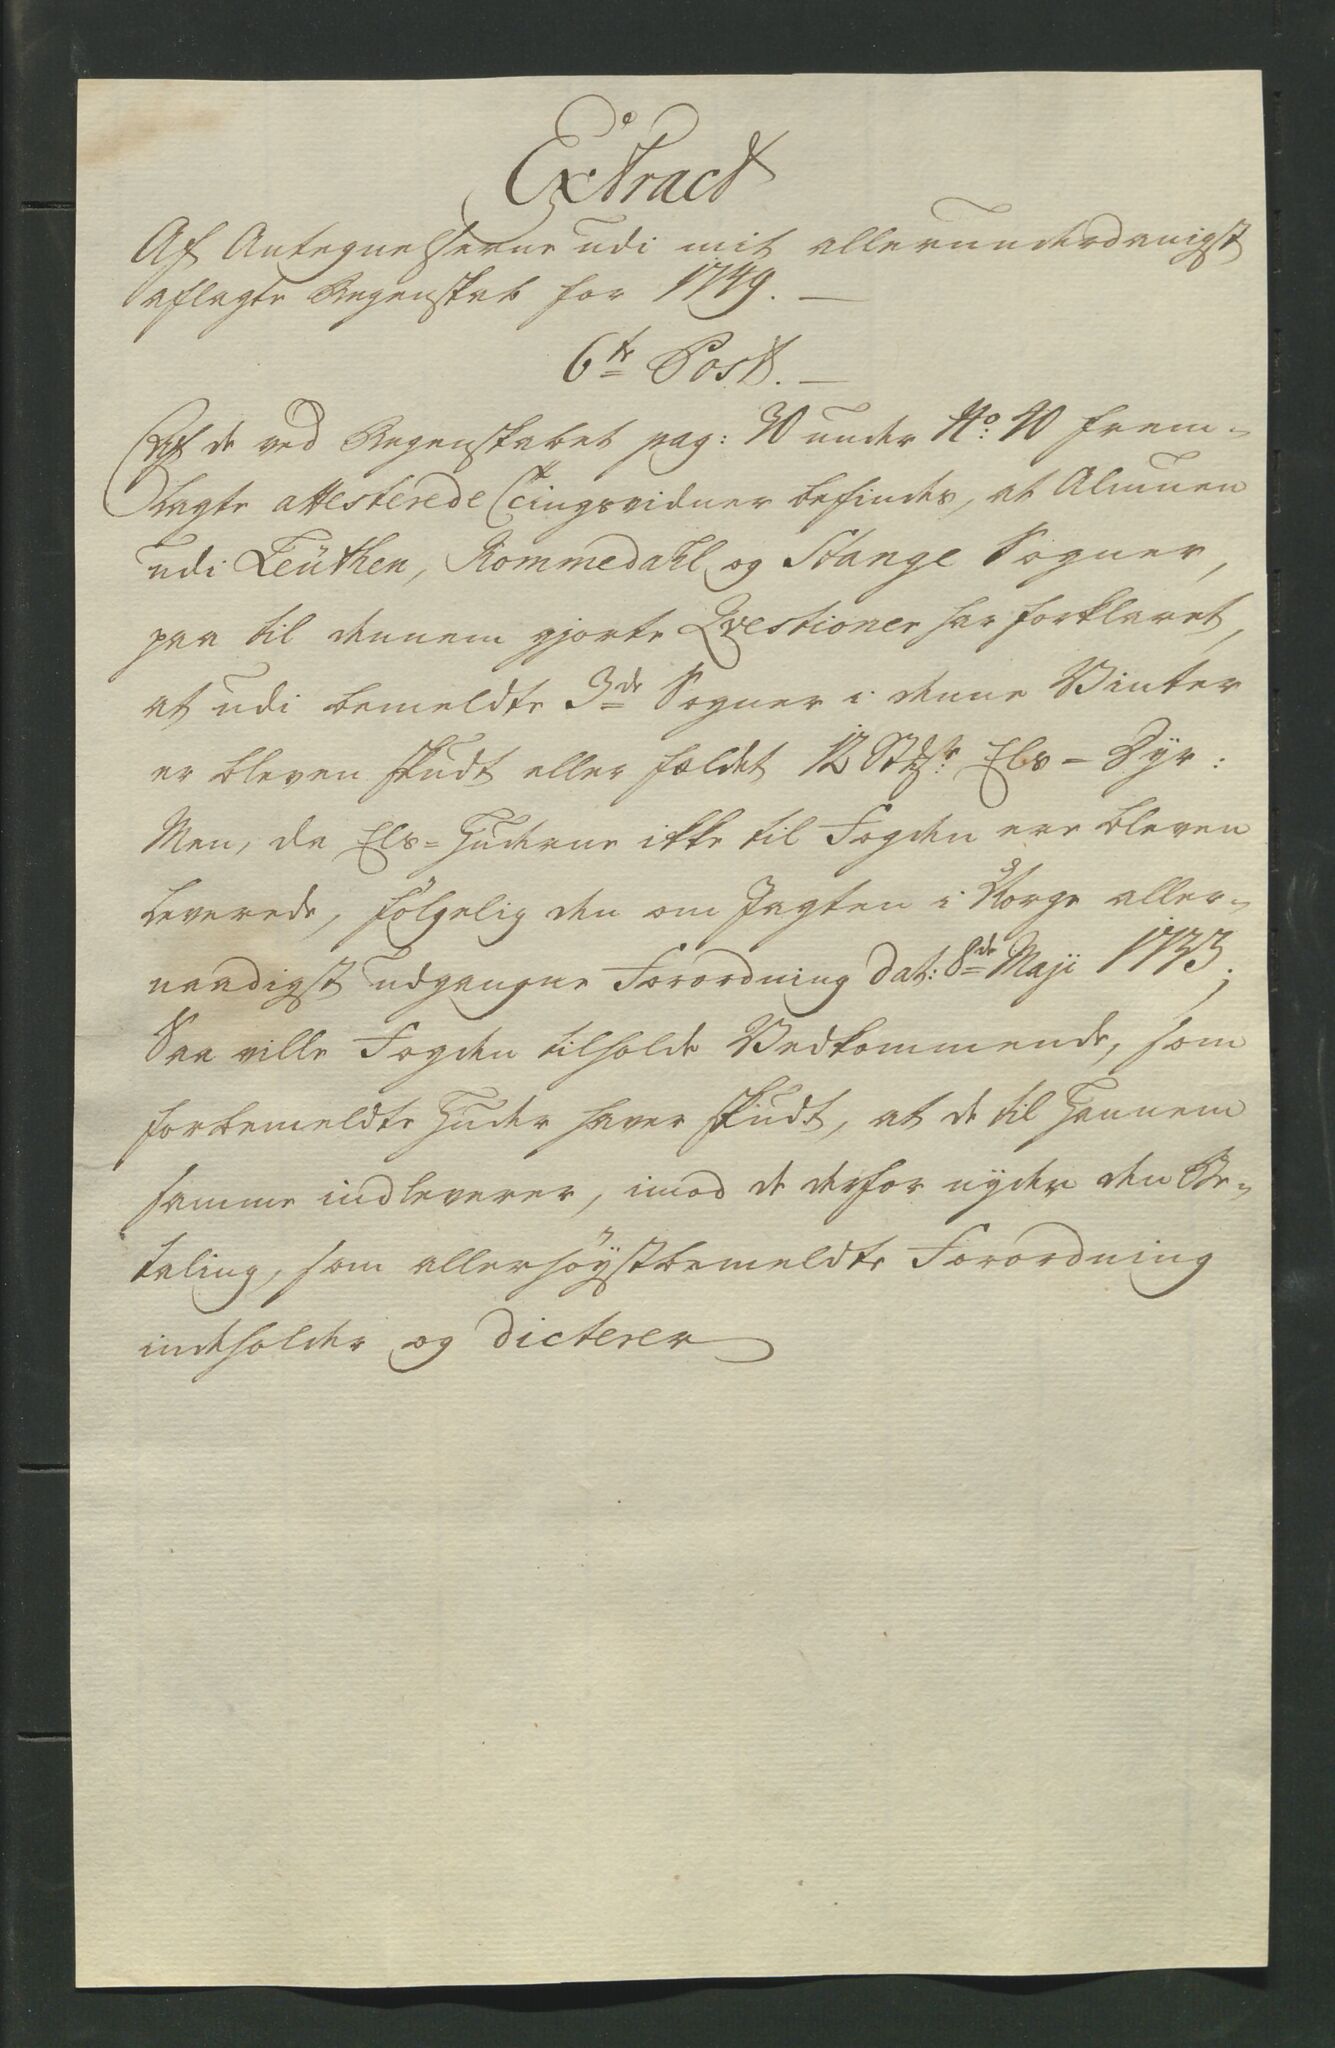 Extract
Af Antegnelserne udi mit allerunderdanigst
aflagte Regenskab for 1749.
6te Post.
Af de ved Regenskabet pag: 30 under No: 20 frem-
lagte attesterede Tingsvidner befindes, at Almuen
udi Leuthen, Rommedahl og Stange Sogner,
paa til dennem giorte Qvestioner har forklaret,
at udi bemeldte 3de Sogner i denne Vinter
er bleven skudt eller fældet 12 Stkr: Els-Dÿr:
Men, da Els-Huderne ikke til Fogden ere bleven
leverede, følgelig den om Jagten i Norge aller-
naadigst udgangne Forordning dat: 8de Maji 1733;
Saa ville Fogden tilholde Vedkommende, som
forbemeldte Huder haver skudt, at de til Hannem
samme indleverer, imod de derfor nyder den Be-
taling, som allerhöÿstbemeldte Forordning
indeholder og dicterer